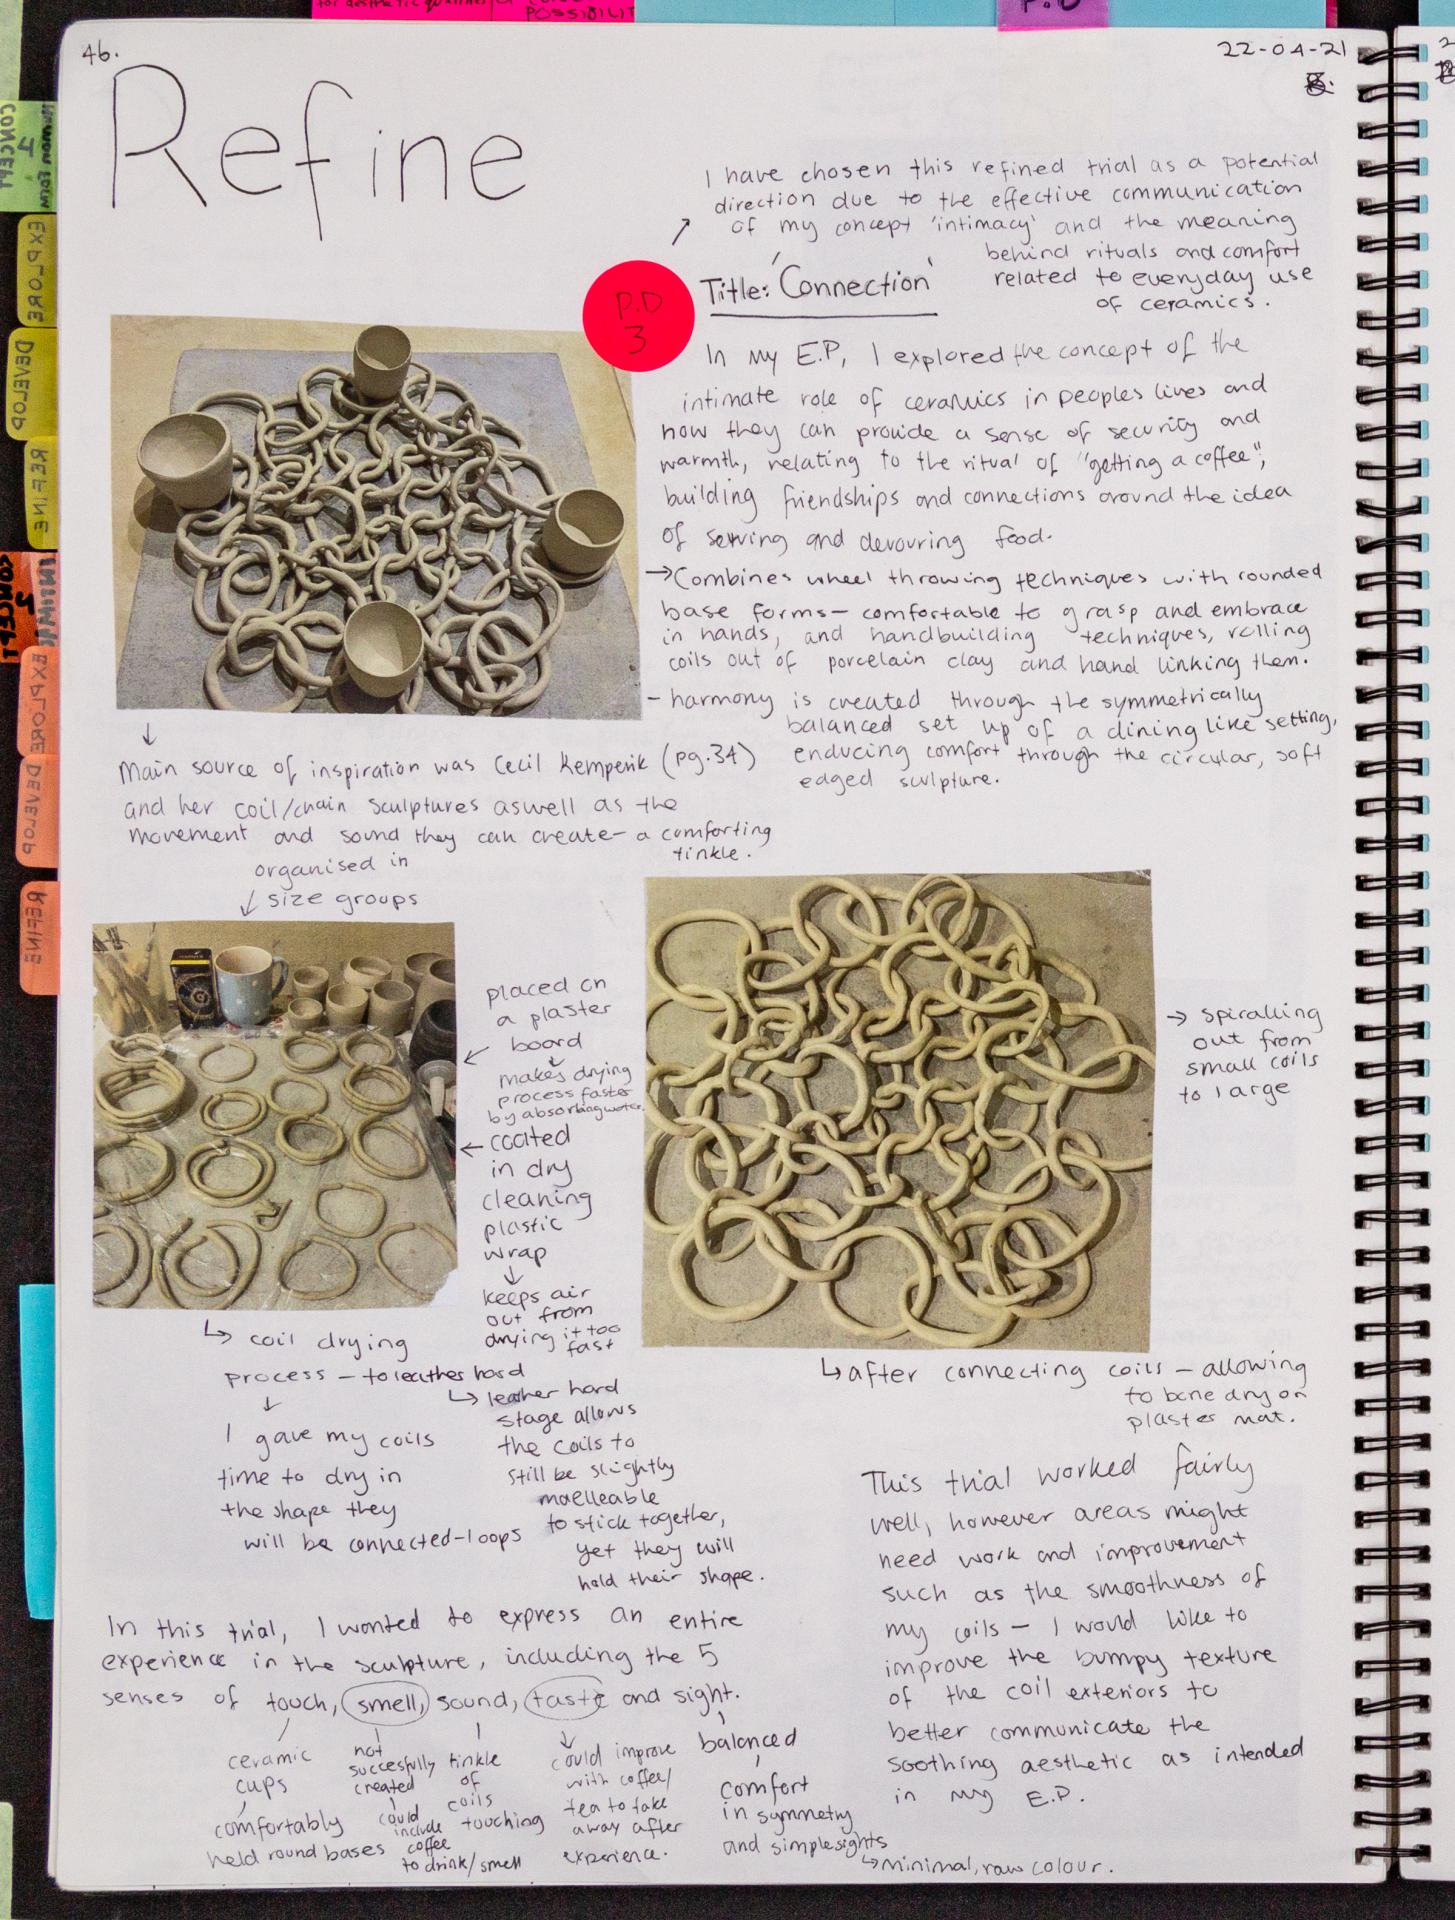 for aesthetic qualities
POSSIBILIT
P.D
46.
22-04-21
Refine
I have chosen this refined trial as a potential
direction due to the effective communication
of my concept 'intimacy' and the meaning
behind rituals and comfort
related to everyday use
of ceramics.
P.D
3
Title: 'Connection'
In my E.P, I explored the concept of the
intimate role of ceramics in peoples lives and
how they can provide a sense of security and
warmth, relating to the ritual of "getting a coffee",
building friendships and connections around the idea
of serving and devouring food.
→Combines wheel throwing techniques with rounded
base forms — comfortable to grasp and embrace
in hands, and handbuilding techniques, rolling
coils out of porcelain clay and hand linking them.
- harmony is created through the symmetrically
balanced set up of a dining like setting,
enducing comfort through the circular, soft
edged sculpture.
Main source of inspiration was Cecil Kemperik (pg.34)
and her coil/chain sculptures aswell as the
movement and sound they can create - a comforting
tinkle.
organised in
size groups
placed on
a plaster
board
makes drying
process faster
by absorbing water.
coated
in dry
cleaning
plastic
wrap
keeps air
out from
drying it too
fast
→ spiralling
out from
small coils
to large
coil drying
process — to leather hard
I gave my coils
time to dry in
the shape they
will be connected-loops
leather hard
stage allows
the coils to
still be slightly
maelleable
to stick together,
yet they will
hold their shape.
after connecting coils — allowing
to bone dry on
plaster mat.
This trial worked fairly
well, however areas might
need work and improvement
such as the smoothness of
my coils — I would like to
improve the bumpy texture
of the coil exteriors to
better communicate the
soothing aesthetic as intended
in my E.P.
In this trial, I wanted to express an entire
experience in the sculpture, including the 5
senses of touch, smell, sound, taste and sight.
ceramic
cups
comfortably
held round bases
not
succesfully
created
could
include
coffee
to drink/smell
tinkle
of
coils
touching
could improve
with coffee/
tea to take
away after
experience.
balanced
comfort
in symmetry
and simple sights
minimal, raw colour.
CONCEPT
EXPLORE
DEVELOP
REFINE
CONCEPT
EXPLORE
DEVELOP
REFINE